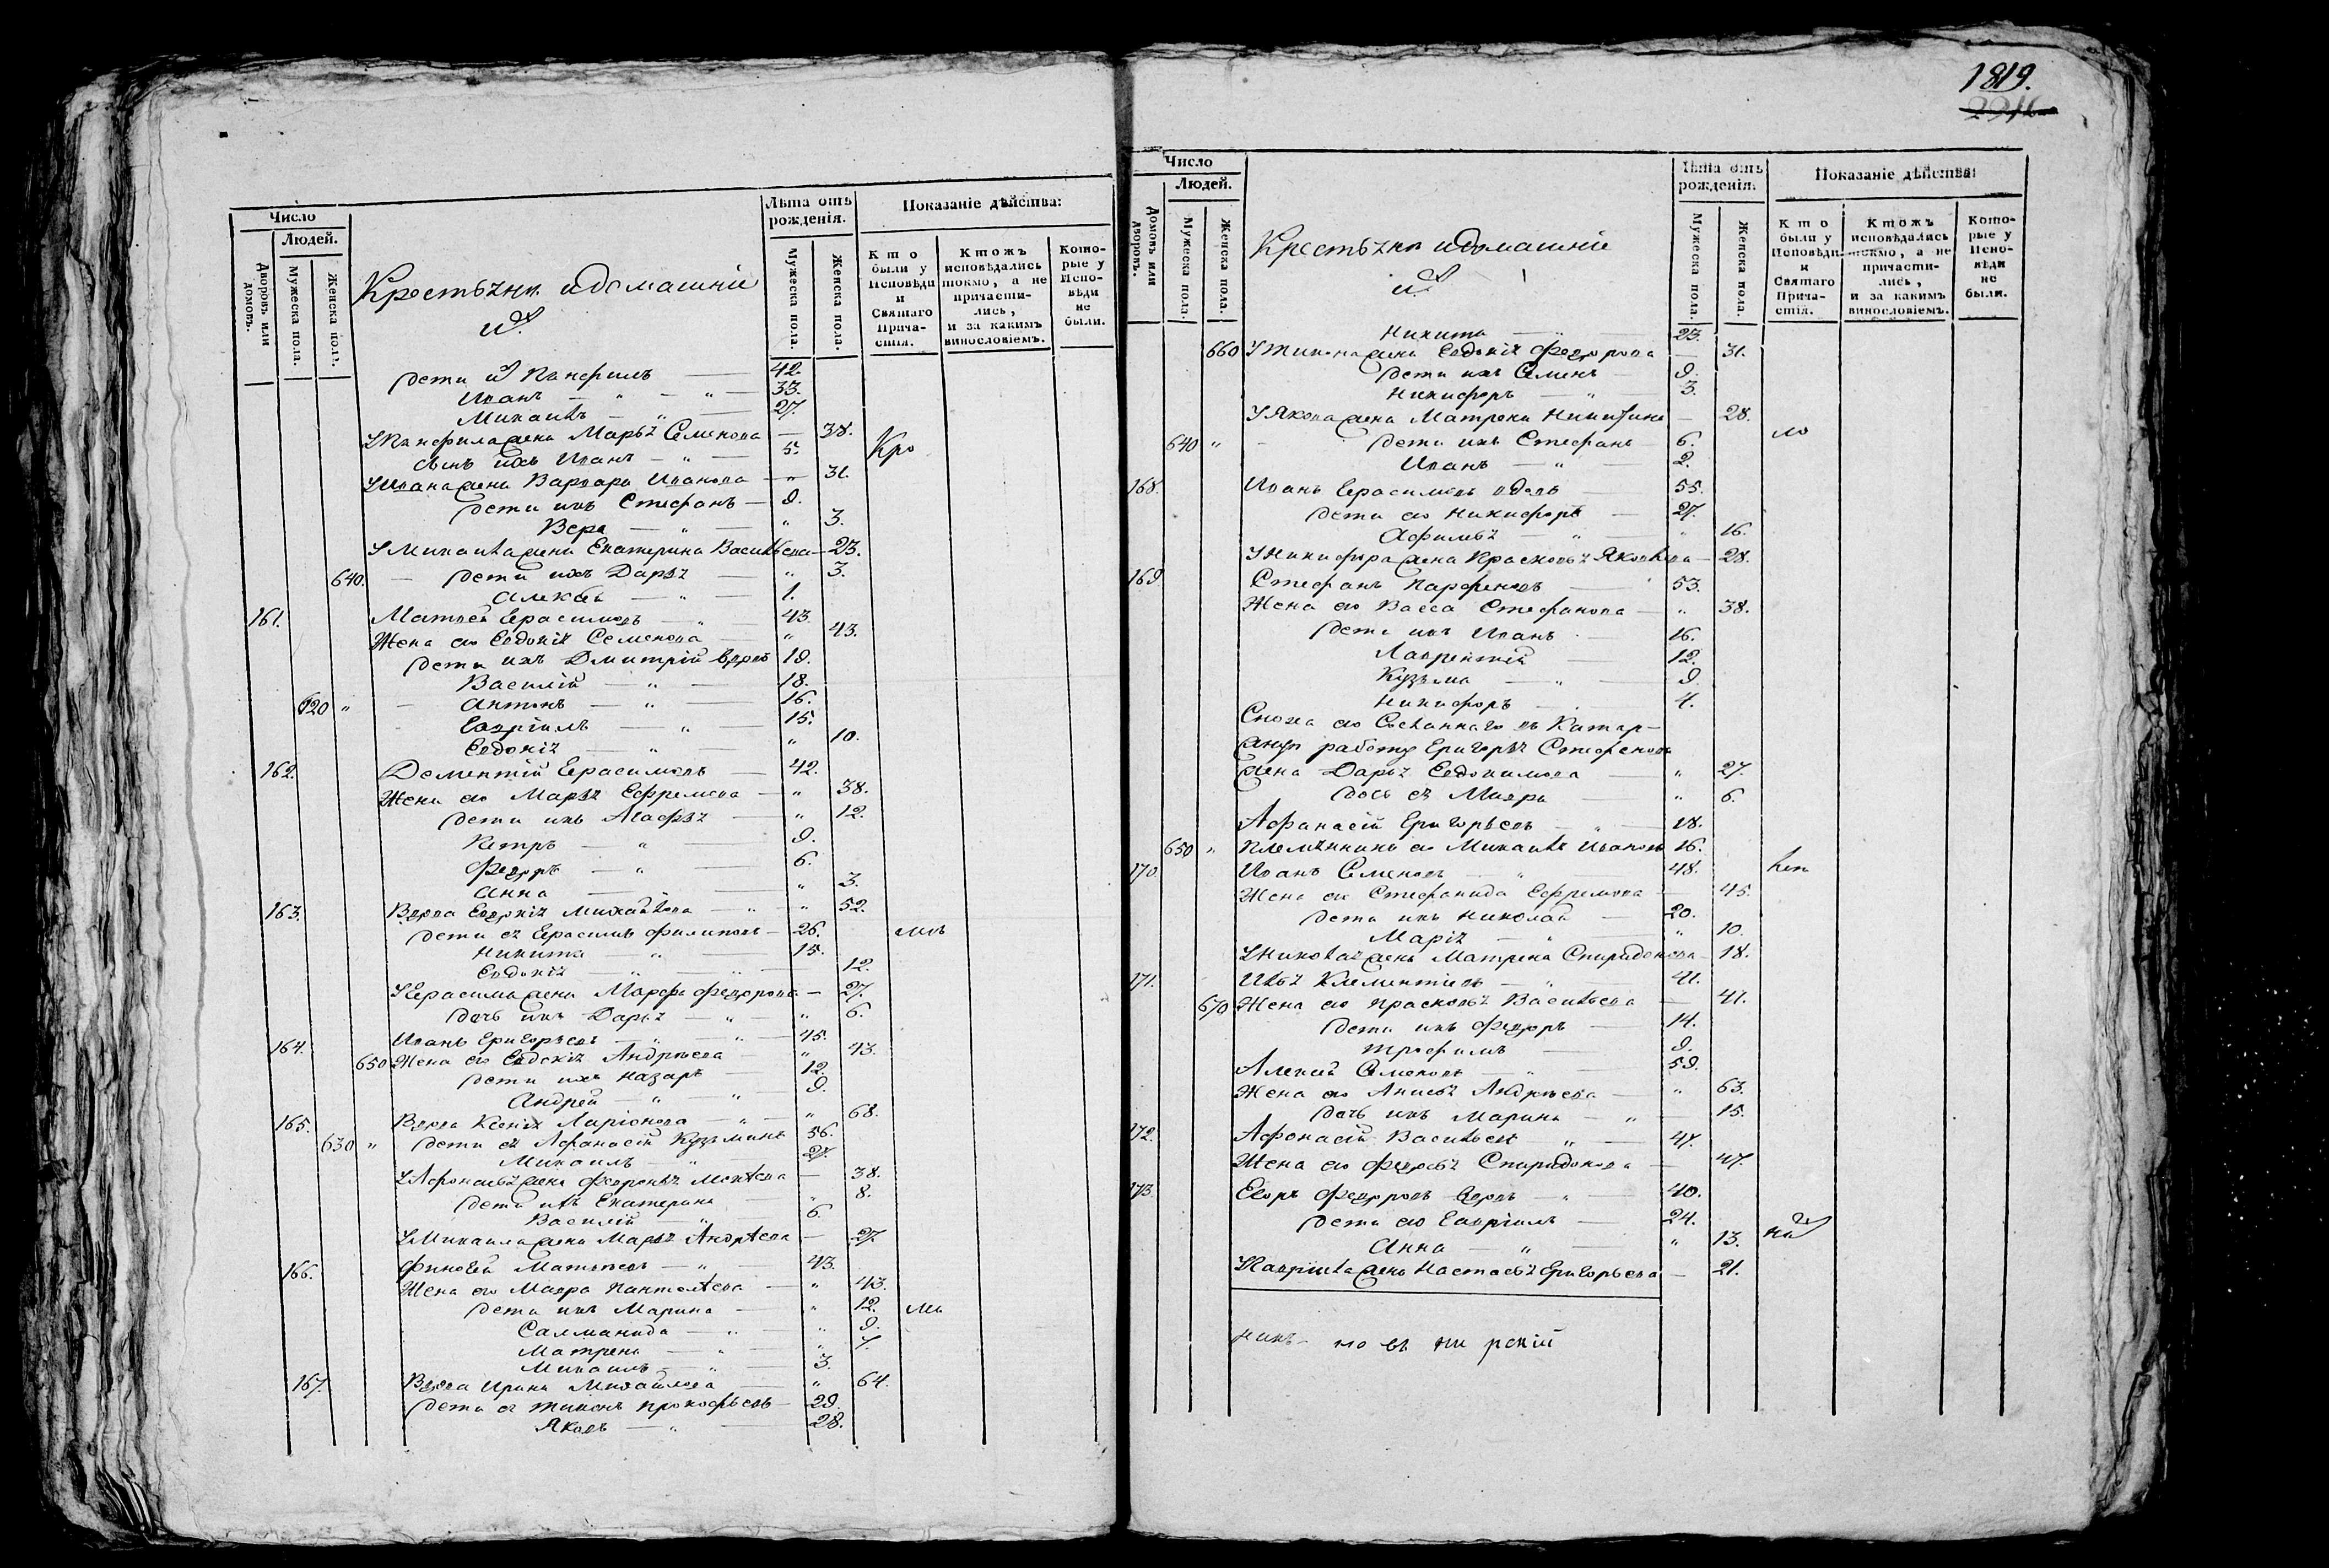 1819.
Число
Людей.
Дворовъ или домовъ.
Мужеска пола.
Женска пола.
Крестьяне и домашніе
ихъ
Лѣта отъ рожденія.
Мужеска пола.
Женска пола.
Показаніе дѣйства:
Кто были у Исповѣди и Святаго Причастія.
Ктожъ исповѣдались токмо, а не причастились, и за какимъ винословіемъ.
Которые у Исповѣди не были.
Дети их Панфилъ 42.
Иванъ — „ — „ — 33.
Михаилъ — „ — 27.
У Панфила жена Марья Семенова — 38.
сынъ ихъ Иванъ — „ — 5. Кро
У Ивана жена Варвара Иванова — „ 31.
Дети ихъ Стефанъ — 9.
Вера — „ — „ 3.
У Михаила жена Екатерина Васильева — 23.
640. — Дети ихъ Дарья — „ 3.
Алексей — „ — 1.
161. Матвей Герасимовъ — „ — 43.
Жена его Евдокия Семенова — „ 43.
Дети ихъ Дмитрій вдовъ 19.
Василій — „ — 18.
620 „ — Антонъ — „ — 16.
Гавріилъ — „ — 15.
Евдокия — „ — „ 10.
162. Дементій Герасимовъ — 42.
Жена его Марья Ефремова — „ 38.
Дети ихъ Агафья — „ 12.
Петръ — „ — 9.
Федоръ — „ — 6.
Анна — „ 3.
163. Вдова Евдокия Михайлова — „ — „ 52.
Дети ея Герасимъ Филиповъ — 26. мъ
Никита — „ — 15.
Евдокия „ — „ — 12.
У Герасима жена Марфа Федорова — 27.
Дочь ихъ Дарья — „ — „ 6.
164. Иванъ Григорьевъ — „ — „ — 45.
650 Жена его Евдокия Андреева — „ 43.
Дети ихъ Назаръ — 12.
Андрей — „ — „ — 9.
165. Вдова Ксения Ларіонова — „ — „ 68.
630 „ Дети ея Афанасій Кузьминъ 36.
Михаилъ — „ — 27.
У Афонасья жена Федосья — 38.
Дети ихъ Екатерина — „ 8.
Василій — „ — 6.
У Михаила жена Марья Андреева — 27.
166. Матвеевъ — „ — 43.
Жена его Мавра Пантелеева — „ 43.
Дети ихъ Марина — „ 12.
Саломанида — „ — „ 9.
Матрена — „ — „ 7.
Михаилъ — „ — 3.
167. Вдова Ирина Михайлова — „ 64.
Дети ея Тихонъ Прокофьевъ — 29.
Яковъ — „ — 28.
Число
Людей.
Домовъ или дворовъ.
Мужеска пола.
Женска пола.
Крестьяне и домашніе
ихъ
Лѣта отъ рожденія.
Мужеска пола.
Женска пола.
Показаніе дѣйства:
Кто были у Исповѣди и Святаго Причастія.
Ктожъ исповѣдались токмо, а не причастились, и за какимъ винословіемъ.
Которые у Исповѣди не были.
Никита — „ — 23.
660 У Тихона жена Евдокия Федорова — 31.
Дети ихъ Семенъ — 9.
Никифоръ — „ 3.
У Якова жена Матрена Никитина — 28.
640 „ — Дети ихъ Стефанъ — 6. ло
Иванъ — „ — 2.
168. Иванъ Герасимовъ вдовъ — 55.
Дети его Никифоръ — 27.
Афимья — „ — „ 16.
У Никифора жена Прасковья Яковлева — 28.
169. Стефанъ Парфеновъ — 53.
Жена его Васса Стефанова — „ 38.
Дети ихъ Иванъ — 16.
Лаврентій — 12.
Кузьма — „ — 9.
Никифоръ — 4.
Сноха его Сосланнаго въ Катор-
жную работу Григорья Стефанова
жена Дарья Евдокимова — „ 27.
дочь ея Мавра — „ 6.
Афанасій Григорьевъ — „ — 18.
650 „ Племянникъ его Михаилъ Ивановъ 16.
170. Иванъ Семеновъ — „ — 48.
Жена его Стефанида Ефремова — 45.
Дети ихъ Николай — 20.
Марія — „ — „ 10.
У Николая жена Матрена Спиридонова — 18.
171. Илья Клементіевъ — „ — 41.
670 Жена его Прасковья Васильева — 41.
Дети ихъ Федоръ — 14.
Трофимъ — 9.
Алексей Семеновъ — „ — 59.
Жена его Анисья Андреева — „ 63.
Дочь ихъ Марина — „ — 15.
172. Афонасій Васильевъ „ — 47.
Жена его Федосья Спиридонова — 47.
173. Егоръ Федоровъ вдовъ — „ — 40.
Дети его Гавріилъ — 24.
Анна — „ — „ 13.
У Гавріила жена Настасья Григорьева — 21.